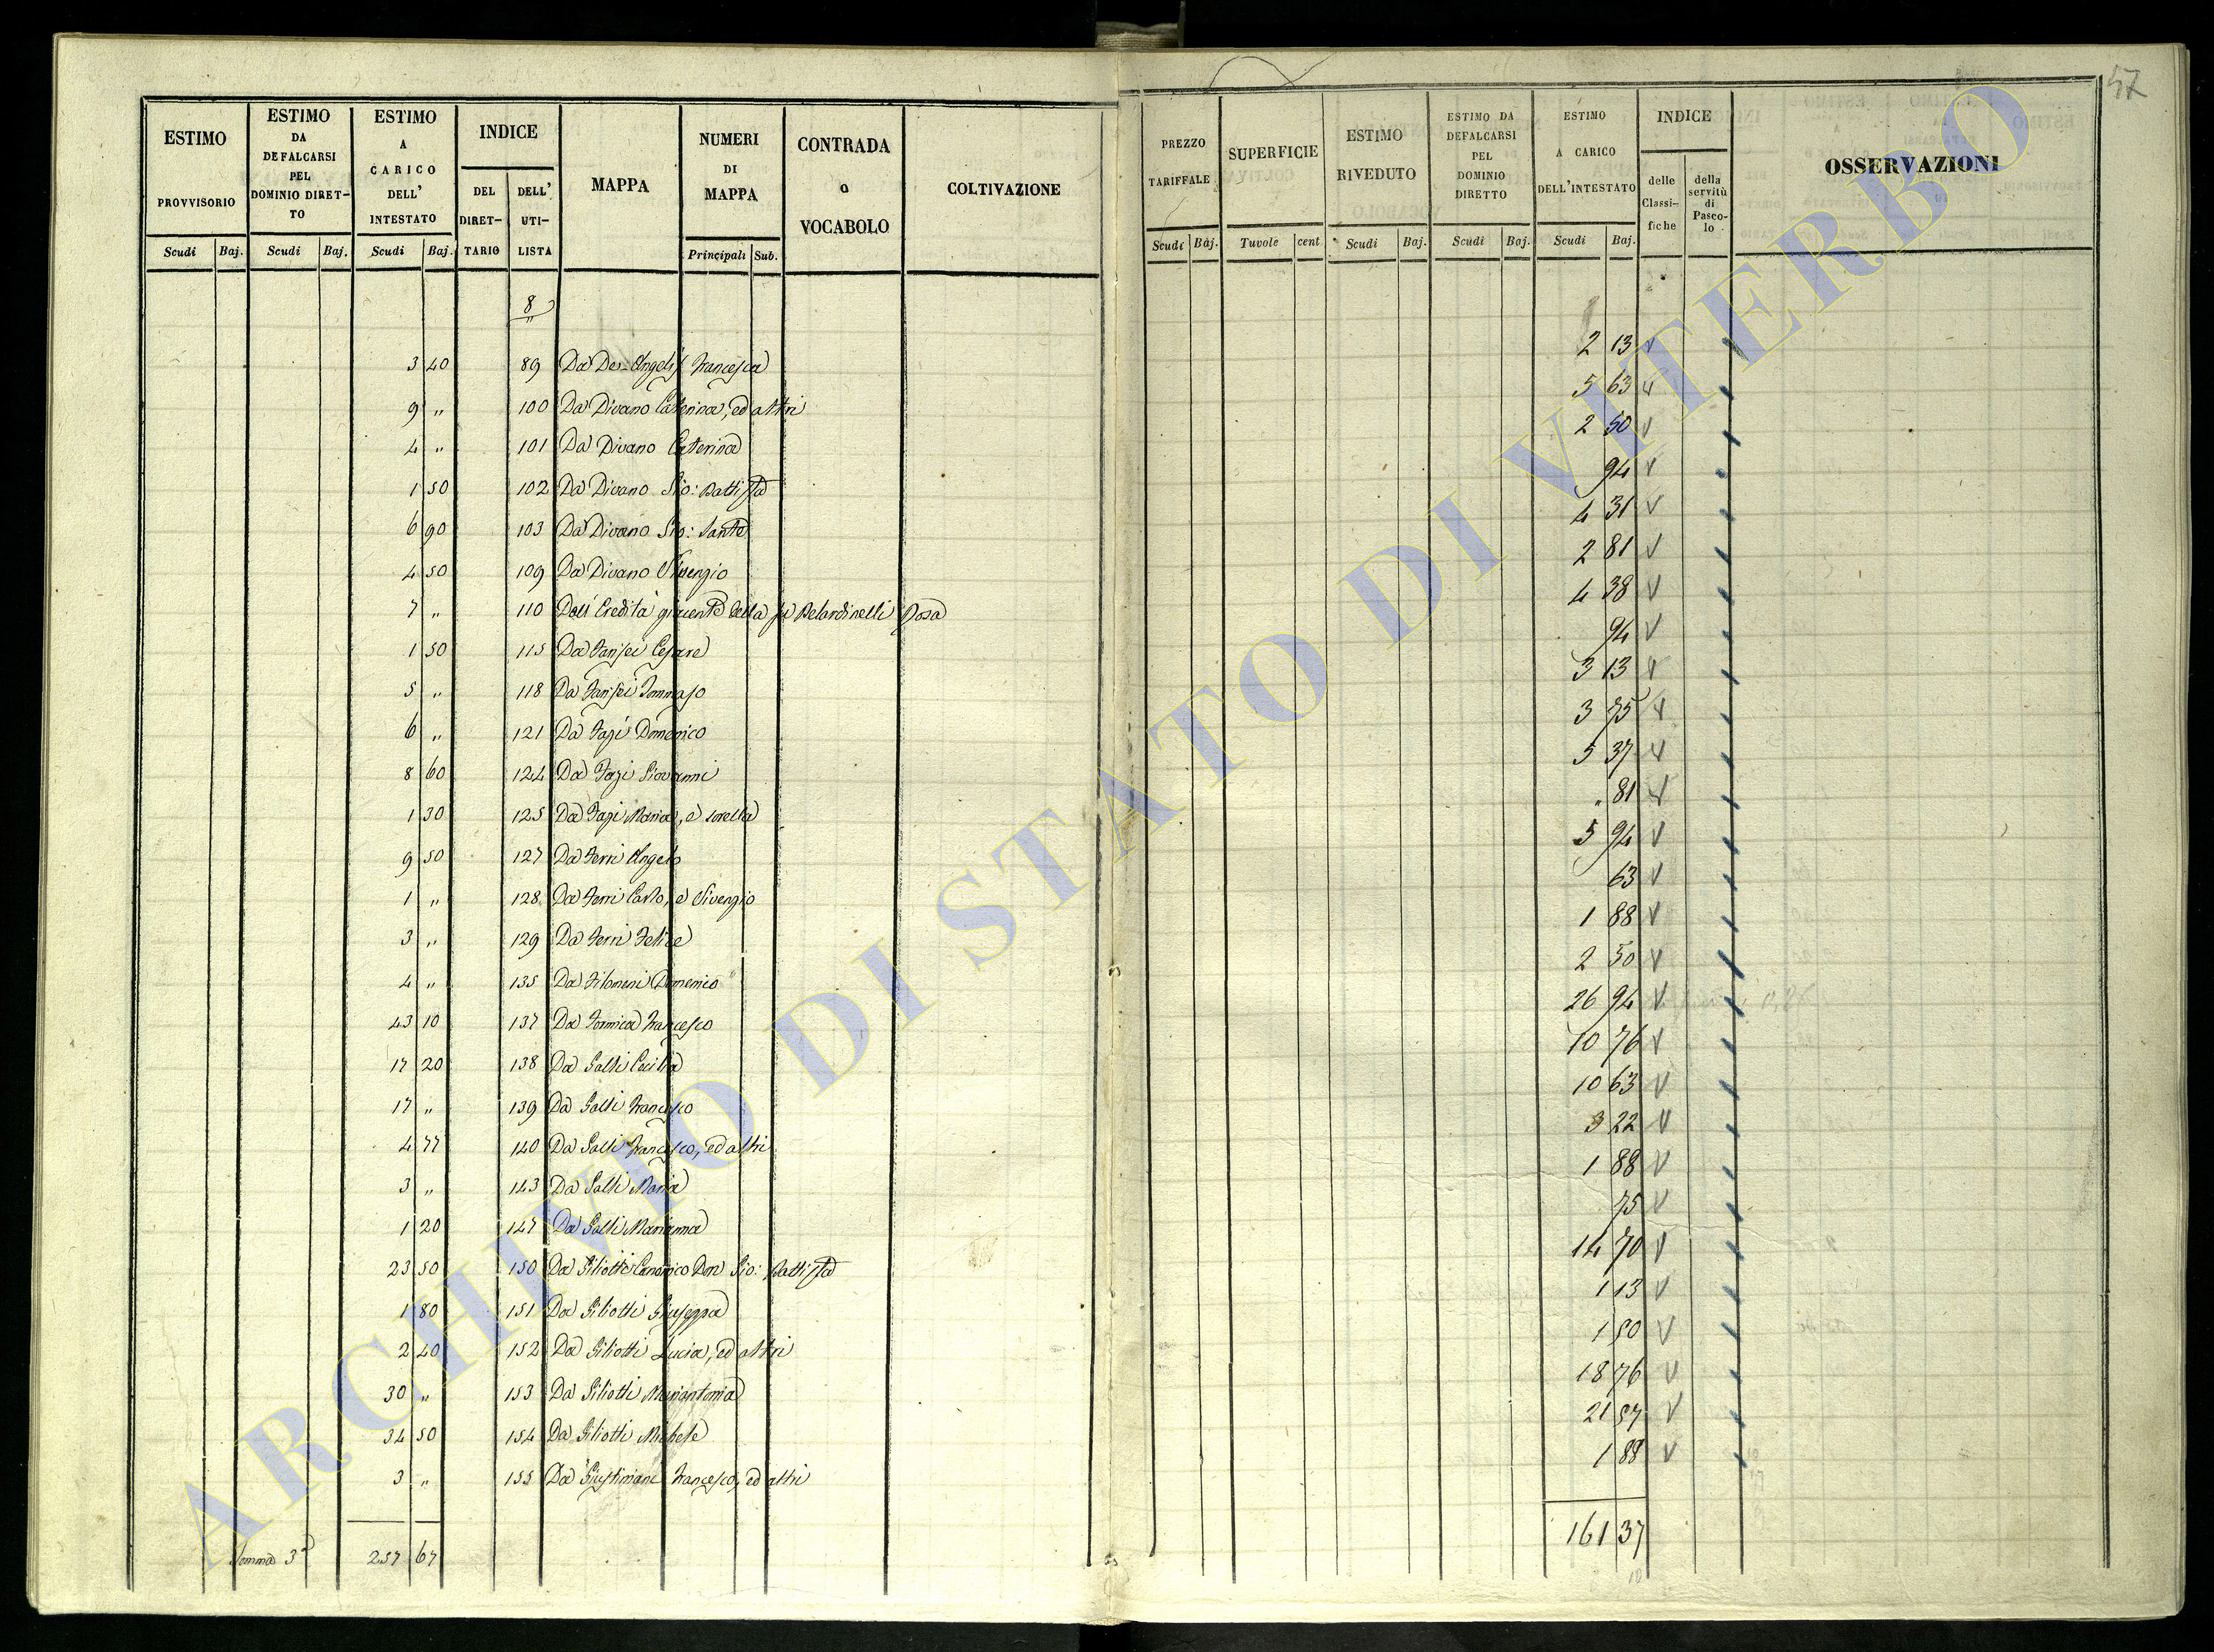 57
ESTIMO PROVVISORIO | ESTIMO DA DEFALCARSI PEL DOMINIO DIRETTO | ESTIMO A CARICO DELL' INTESTATO | INDICE | MAPPA | NUMERI DI MAPPA | CONTRADA o VOCABOLO | COLTIVAZIONE | PREZZO TARIFFALE | SUPERFICIE | ESTIMO RIVEDUTO | ESTIMO DA DEFALCARSI PEL DOMINIO DIRETTO | ESTIMO A CARICO DELL'INTESTATO | INDICE | OSSERVAZIONI
DEL DIRET-TARIO | DELL' UTI-LISTA | delle Classi-fiche | della servitù di Pasco-lo
Scudi | Baj. | Scudi | Baj. | Scudi | Baj. | Principali | Sub. | Scudi | Baj. | Tavole | cent | Scudi | Baj. | Scudi | Baj. | Scudi | Baj.
8
"
3 40 89 Da De-Angelis Francesca 2 13
9 " 100 Da Divano Caterina, ed altri 5 63
4 " 101 Da Divano Caterina 2 50
1 50 102 Da Divano Gio: Battista 94
6 90 103 Da Divano Gio: Sante 4 31
4 50 109 Da Divano Vivenzio 2 81
7 " 110 Dall' Eredità giacente della fu Belardinelli Rosa 4 38
1 50 115 Da Farisei Cesare 94
5 " 118 Da Farisei Tommaso 3 13
6 " 121 Da Fazi Domenico 3 75
8 60 124 Da Fazi Giovanni 5 37
1 30 125 Da Fazi Maria, e sorella " 81
9 50 127 Da Ferri Angelo 5 94
1 " 128 Da Ferri Carlo, e Vivenzio 63
3 " 129 Da Ferri Felice 1 88
4 " 135 Da Filomeni Domenico 2 50
43 10 137 Da Formica Francesco 26 94
17 20 138 Da Galli Cecilia 10 76
17 " 139 Da Galli Francesco 10 63
4 77 140 Da Galli Francesco, ed altri 3 22
3 " 143 Da Galli Maria 1 88
1 20 147 Da Galli Marianna 75
23 50 150 Da Giliotti Canonico Don Gio: Battista 14 70
1 80 151 Da Giliotti Giuseppa 1 13
2 40 152 Da Giliotti Lucia, ed altri 1 50
30 " 153 Da Giliotti Mariantonia 18 76
34 50 154 Da Giliotti Michele 21 57
3 " 155 Da Giustiniani Francesco, ed altri 1 88
Somma 3ª 257 67 161 37
ARCHIVIO DI STATO DI VITERBO